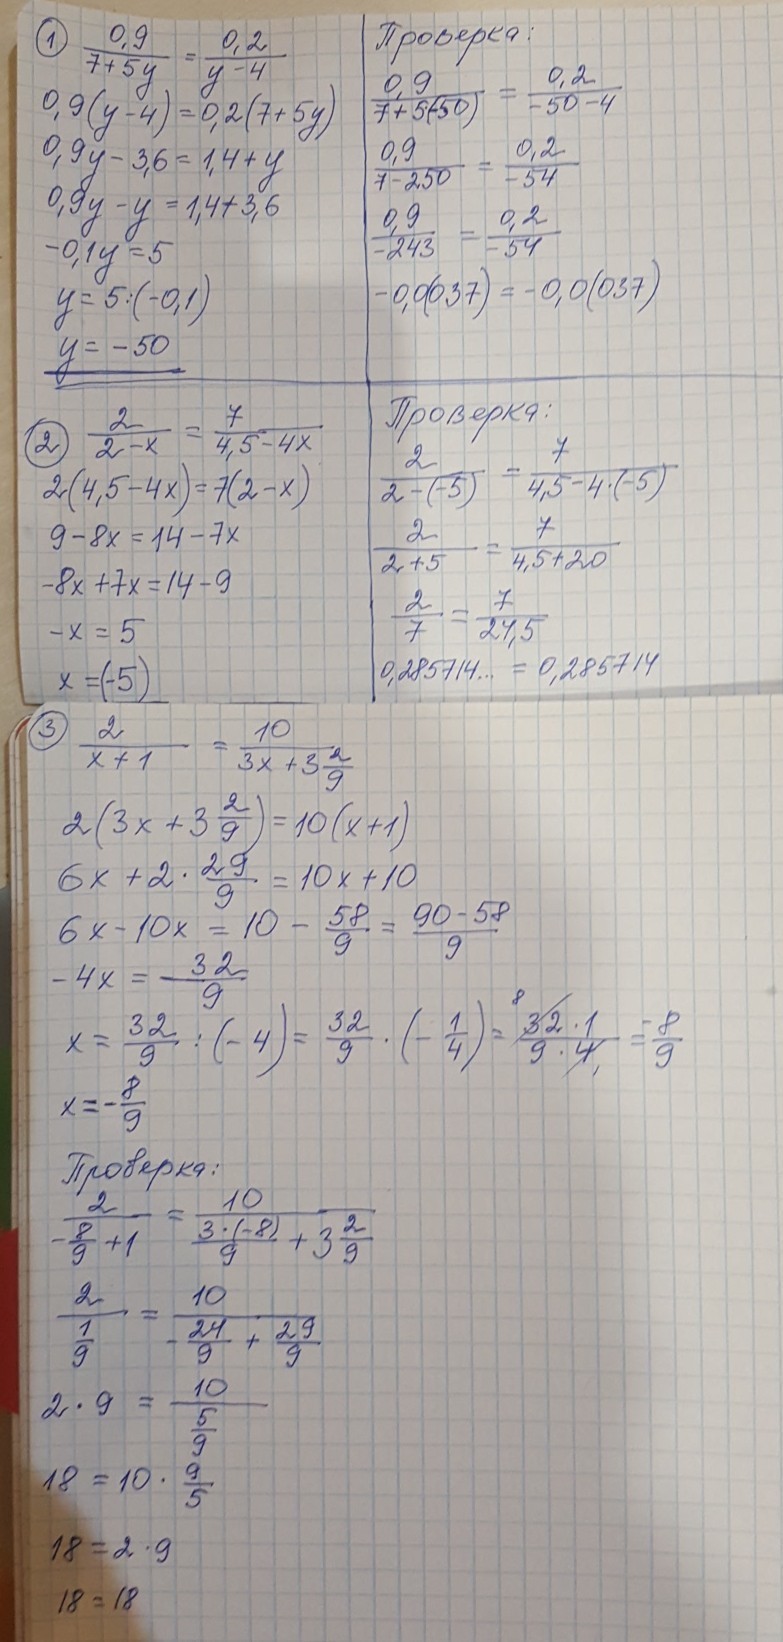 1 0,9/(7+5y) = 0,2/(y-4)
0,9(y-4)=0,2(7+5y)
0,9y-3,6=1,4+y
0,9y-y=1,4+3,6
-0,1y=5
y=5:(-0,1)
y=-50
Проверка:
0,9/(7+5(-50)) = 0,2/(-50-4)
0,9/(7-250) = 0,2/(-54)
0,9/(-243) = 0,2/(-54)
-0,0(037)=-0,0(037)
2 2/(2-x) = 7/(4,5-4x)
2(4,5-4x)=7(2-x)
9-8x=14-7x
-8x+7x=14-9
-x=5
x=(-5)
Проверка:
2/(2-(-5)) = 7/(4,5-4·(-5))
2/(2+5) = 7/(4,5+20)
2/7 = 7/24,5
0,285714... = 0,285714
3 2/(x+1) = 10/(3x+3 2/9)
2(3x+3 2/9)=10(x+1)
6x+2·29/9=10x+10
6x-10x=10-58/9=(90-58)/9
-4x=32/9
x=32/9:(-4)=32/9·(-1/4)=(32·1)/(9·4)=-8/9
x=-8/9
Проверка:
2/(-8/9+1) = 10/(3·(-8)/9+3 2/9)
2/(1/9) = 10/(-24/9+29/9)
2·9 = 10/(5/9)
18=10·9/5
18=2·9
18=18